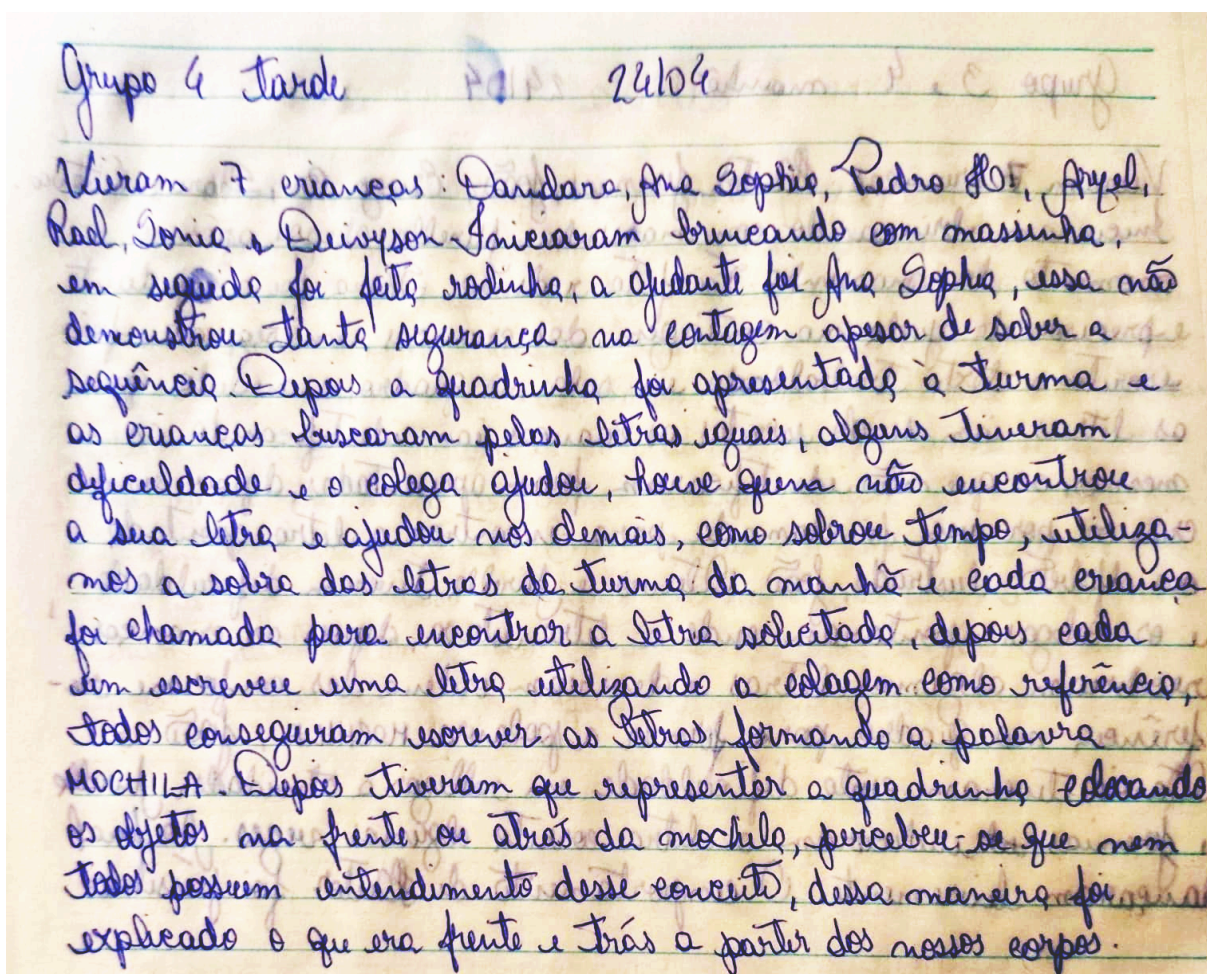 Grupo 4 tarde 24/04
Vieram 7 crianças: Dandara, Ana Sophia, Pedro HO, Aryel,
Rael, Sonia e Deivyson. Iniciaram brincando com massinha,
em seguida foi feita rodinha, a ajudante foi Ana Sophia, essa não
demonstrou tanta segurança na contagem apesar de saber a
sequência. Depois a quadrinha foi apresentada à turma e
as crianças buscaram pelas letras iguais, alguns tiveram
dificuldade e o colega ajudou, houve quem não encontrou
a sua letra e ajudou nos demais, como sobrou tempo, utiliza-
mos a sobra das letras da turma da manhã e cada criança
foi chamada para encontrar a letra solicitada, depois cada
um escreveu uma letra utilizando a colagem como referência,
todos conseguiram escrever as letras formando a palavra
MOCHILA. Depois tiveram que representar a quadrinha colocando
os objetos na frente ou atrás da mochila, percebeu-se que nem
todos possuem entendimento desse conceito, dessa maneira foi
explicado o que era frente e trás a partir dos nossos corpos.